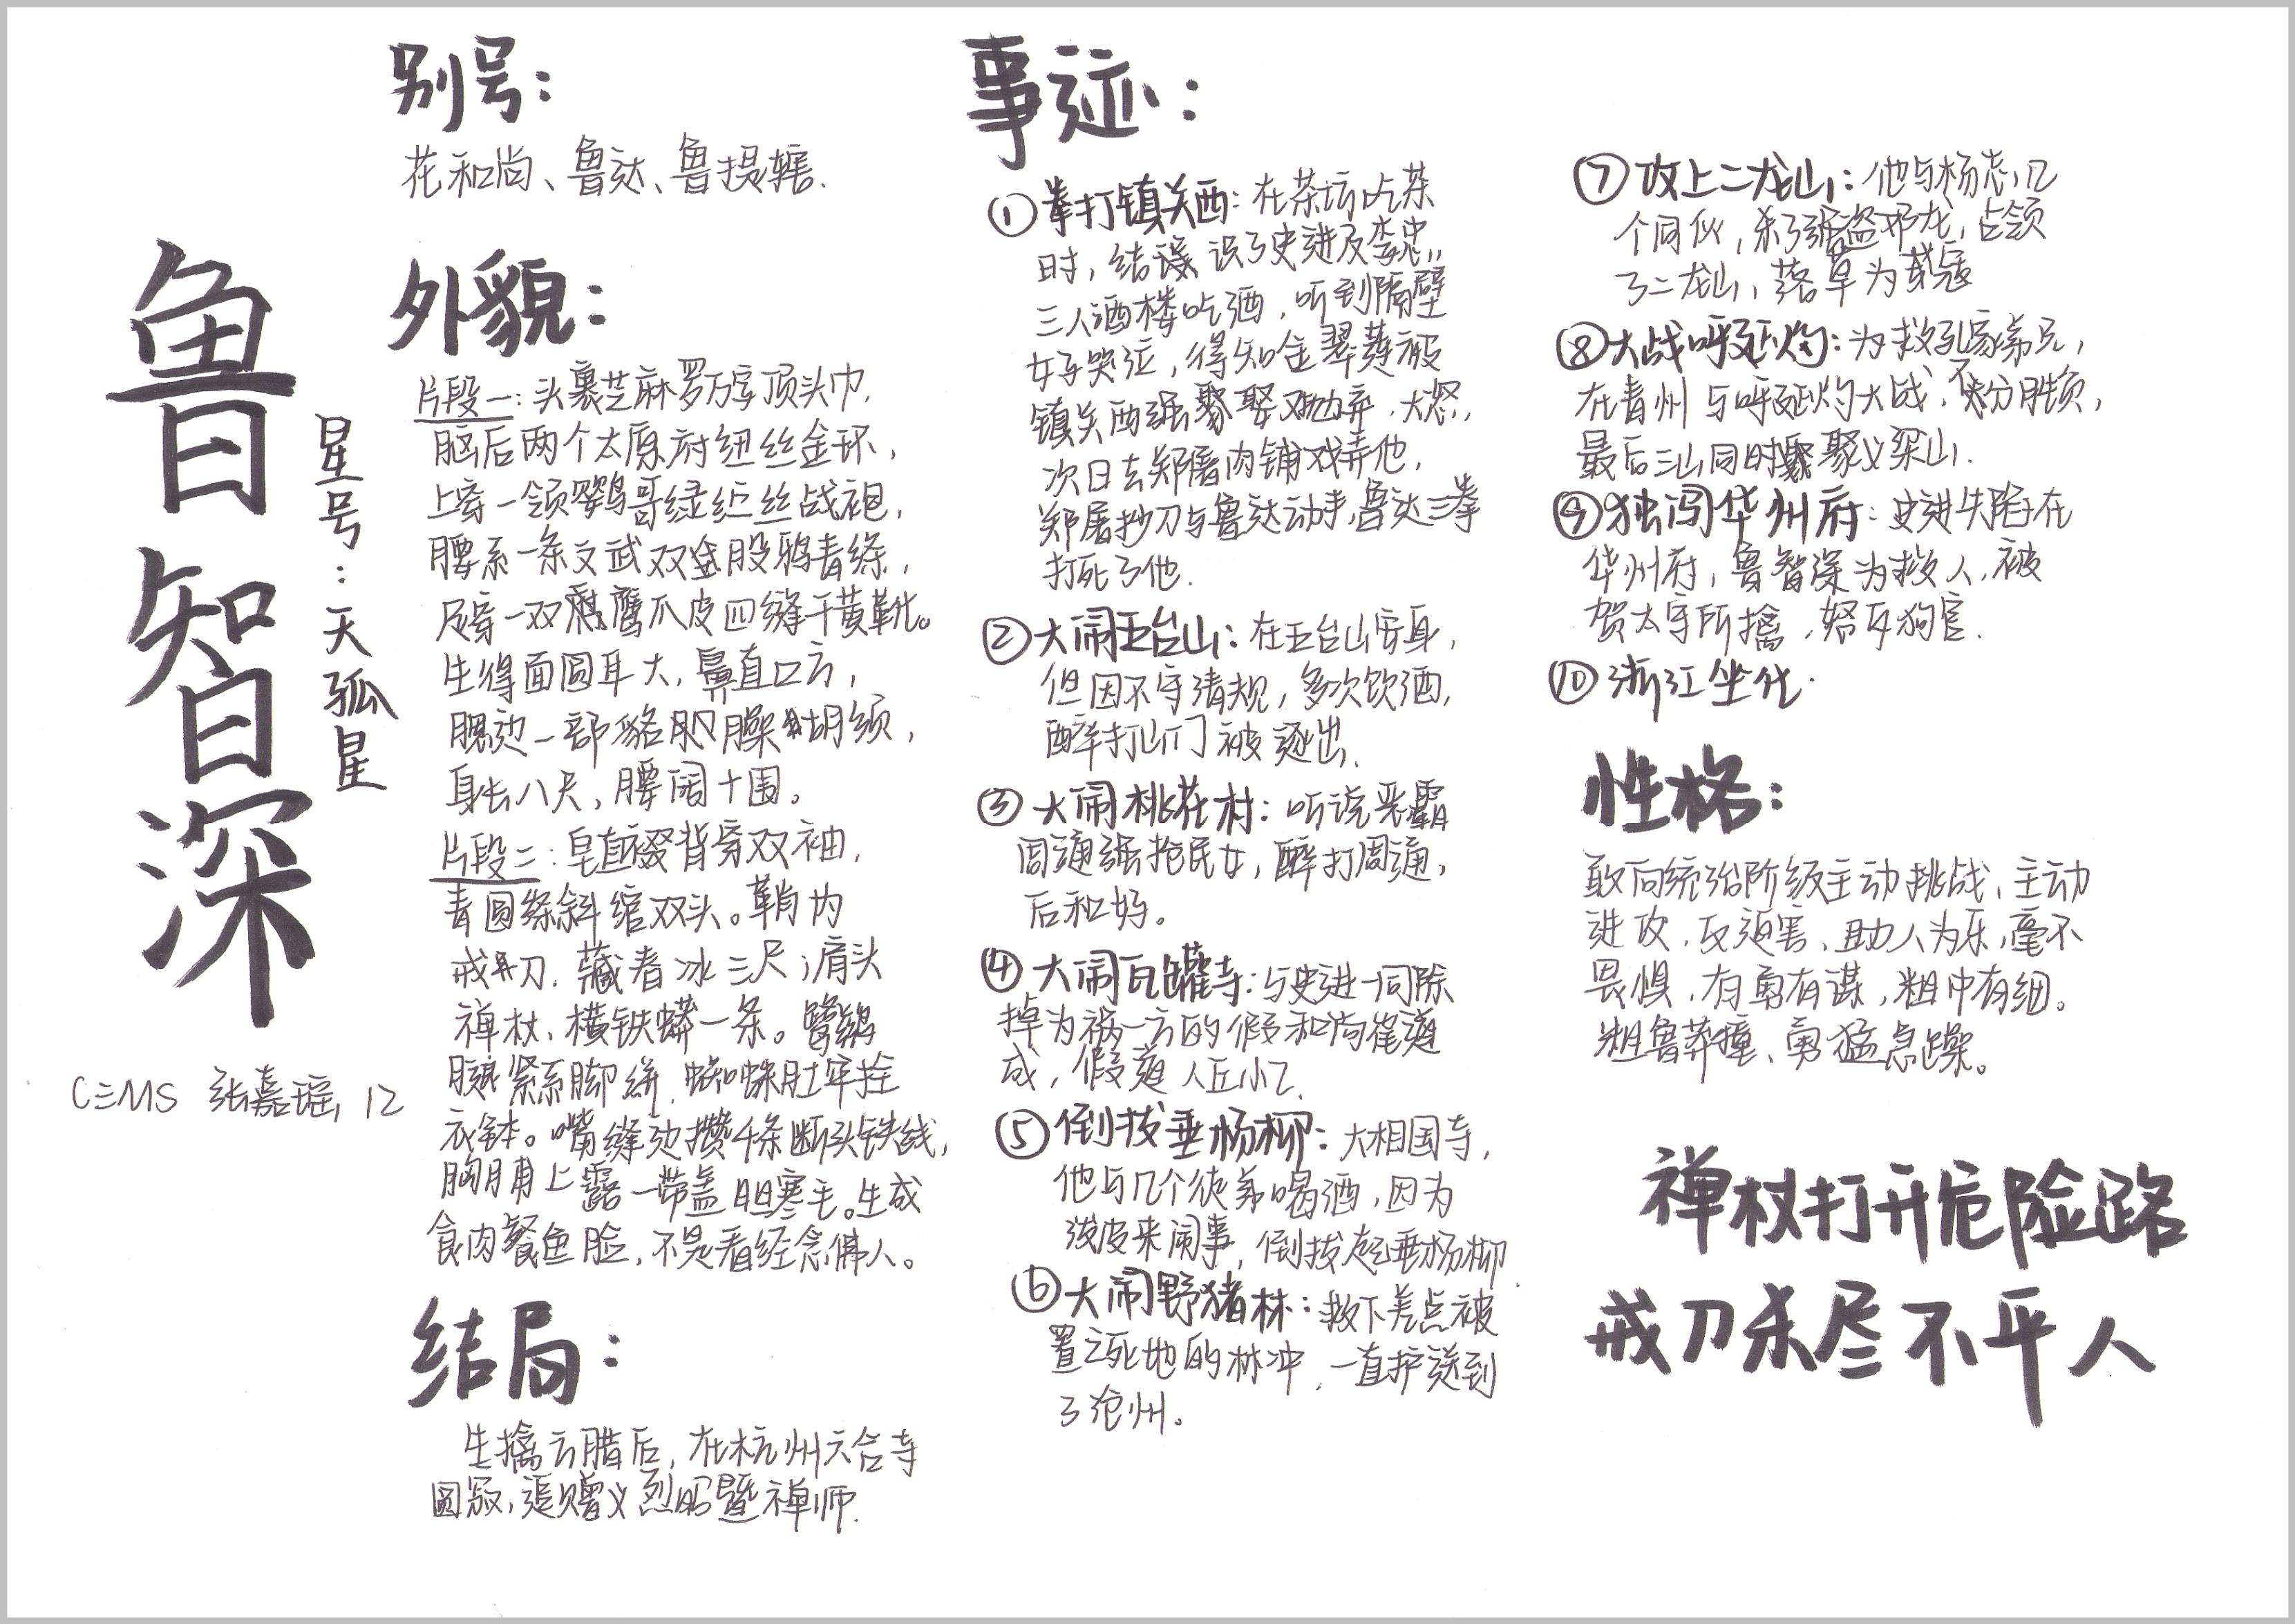 鲁智深
星号：天孤星
C三MS 张嘉瑶，12
别号：
花和尚、鲁达、鲁提辖.
外貌：
片段一：头裹芝麻罗万字顶头巾，
脑后两个太原府纽丝金环，
上穿一领鹦哥绿纻丝战袍，
腰系一条文武双股鸦青绦，
足穿一双鹰爪皮四缝干黄靴。
生得面圆耳大，鼻直口方，
腮边一部貉月臊胡须，
身长八尺，腰阔十围。
片段二：皂直裰背穿双袖，
青圆绦斜绾双头。鞘内
戒刀，藏春冰三尺；肩头
禅杖，横铁蟒一条。鹭鸶
腿紧系脚絣，蜘蛛肚牢拴
衣钵。嘴缝边攒千条断头铁线，
胸脯上露一带盖胆寒毛。生成
食肉餐鱼脸，不是看经念佛人。
结局：
生擒方腊后，在杭州六合寺
圆寂，追赠义烈昭暨禅师.
事迹：
①拳打镇关西：在茶坊吃茶
时，结识了史进及李忠，
三人酒楼吃酒，听到隔壁
女子哭泣，得知金翠莲被
镇关西强娶又抛弃，大怒，
次日去郑屠肉铺戏弄他，
郑屠抄刀与鲁达动手，鲁达三拳
打死了他.
②大闹五台山：在五台山安身，
但因不守清规，多次饮酒，
醉打山门被逐出.
③大闹桃花村：听说恶霸
周通强抢民女，醉打周通，
后和好。
④大闹瓦罐寺：与史进一同除
掉为祸一方的假和尚崔道
成，假道人丘小乙.
⑤倒拔垂杨柳：大相国寺，
他与几个徒弟喝酒，因为
泼皮来闹事，倒拔起垂杨柳.
⑥大闹野猪林：救下差点被
置之死地的林冲，一直护送到
了沧州。
⑦攻上二龙山：他与杨志，几
个同伙，杀了强盗邓龙，占领
了二龙山，落草为寇
⑧大战呼延灼：为救孔家弟兄，
在青州与呼延灼大战，不分胜负，
最后三山同时聚义梁山.
⑨独闯华州府：史进失陷在
华州府，鲁智深为救人，被
贺太守所擒，怒斥狗官.
⑩浙江坐化.
性格：
敢向统治阶级主动挑战、主动
进攻，反迫害、助人为乐，毫不
畏惧，有勇有谋，粗中有细。
粗鲁莽撞、勇猛急躁。
禅杖打开危险路
戒刀杀尽不平人